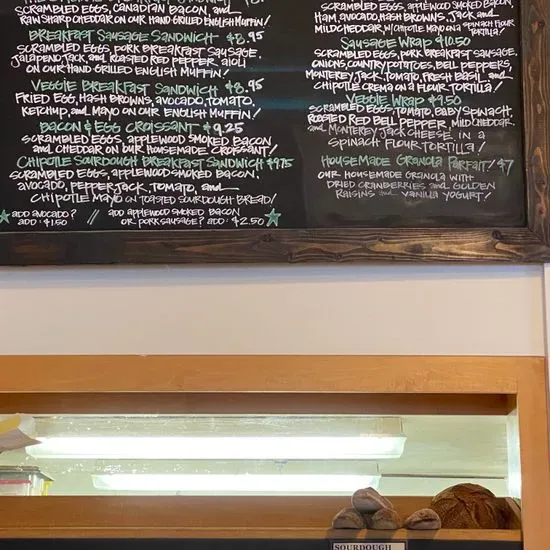 SCRAMBLED EGGS, CANADIAN BACON, AND
RAW SHARP CHEDDAR ON OUR HAND GRILLED ENGLISH MUFFIN!
BREAKFAST SAUSAGE SANDWICH $8.95
SCRAMBLED EGGS, PORK BREAKFAST SAUSAGE,
JALAPENO JACK, AND ROASTED RED PEPPER AIOLI
ON OUR HAND GRILLED ENGLISH MUFFIN!
VEGGIE BREAKFAST SANDWICH $8.95
FRIED EGG, HASH BROWNS, AVOCADO, TOMATO,
KETCHUP, AND MAYO ON OUR ENGLISH MUFFIN!
BACON & EGG CROISSANT $9.25
SCRAMBLED EGGS, APPLEWOOD SMOKED BACON
AND CHEDDAR ON OUR HOUSEMADE CROISSANT!
CHIPOTLE SOURDOUGH BREAKFAST SANDWICH $9.75
SCRAMBLED EGGS, APPLEWOOD SMOKED BACON,
AVOCADO, PEPPER JACK, TOMATO, AND
CHIPOTLE MAYO ON TOASTED SOURDOUGH BREAD!
ADD AVOCADO?
ADD: $1.50
/
ADD APPLEWOOD SMOKED BACON
OR PORK SAUSAGE? ADD: $2.50
SCRAMBLED EGGS, APPLEWOOD SMOKED BACON,
HAM, AVOCADO, HASH BROWNS, JACK AND
MILD CHEDDAR W/ CHIPOTLE MAYO ON A SPINACH FLOUR
TORTILLA!
SAUSAGE WRAP $10.50
SCRAMBLED EGGS, PORK BREAKFAST SAUSAGE,
ONIONS, COUNTRY POTATOES, BELL PEPPERS,
MONTEREY JACK, TOMATO, FRESH BASIL, AND
CHIPOTLE CREMA ON A FLOUR TORTILLA!
VEGGIE WRAP $9.50
SCRAMBLED EGGS, TOMATO, BABY SPINACH,
ROASTED RED BELL PEPPER, MILD CHEDDAR,
AND MONTEREY JACK CHEESE IN A
SPINACH FLOUR TORTILLA!
HOUSEMADE GRANOLA PARFAIT! $7
OUR HOUSEMADE GRANOLA WITH
DRIED CRANBERRIES AND GOLDEN
RAISINS AND VANILLA YOGURT!
SOURDOUGH